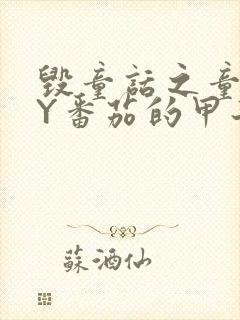 毁童话之童
Y番茄的甲
蘇酒仙